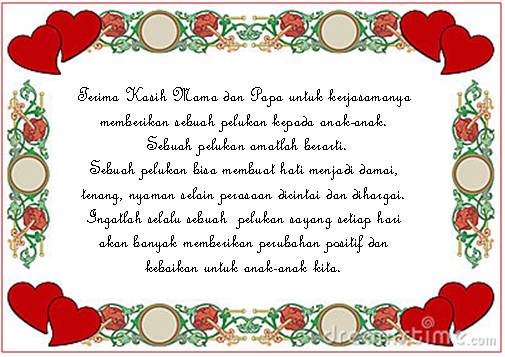 Terima Kasih Mama dan Papa untuk kerjasamanya
memberikan sebuah pelukan kepada anak-anak.
Sebuah pelukan amatlah berarti.
Sebuah pelukan bisa membuat hati menjadi damai,
tenang, nyaman selain perasaan dicintai dan dihargai.
Ingatlah selalu sebuah pelukan sayang setiap hari
akan banyak memberikan perubahan positif dan
kebaikan untuk anak-anak kita.
dreamstime.com